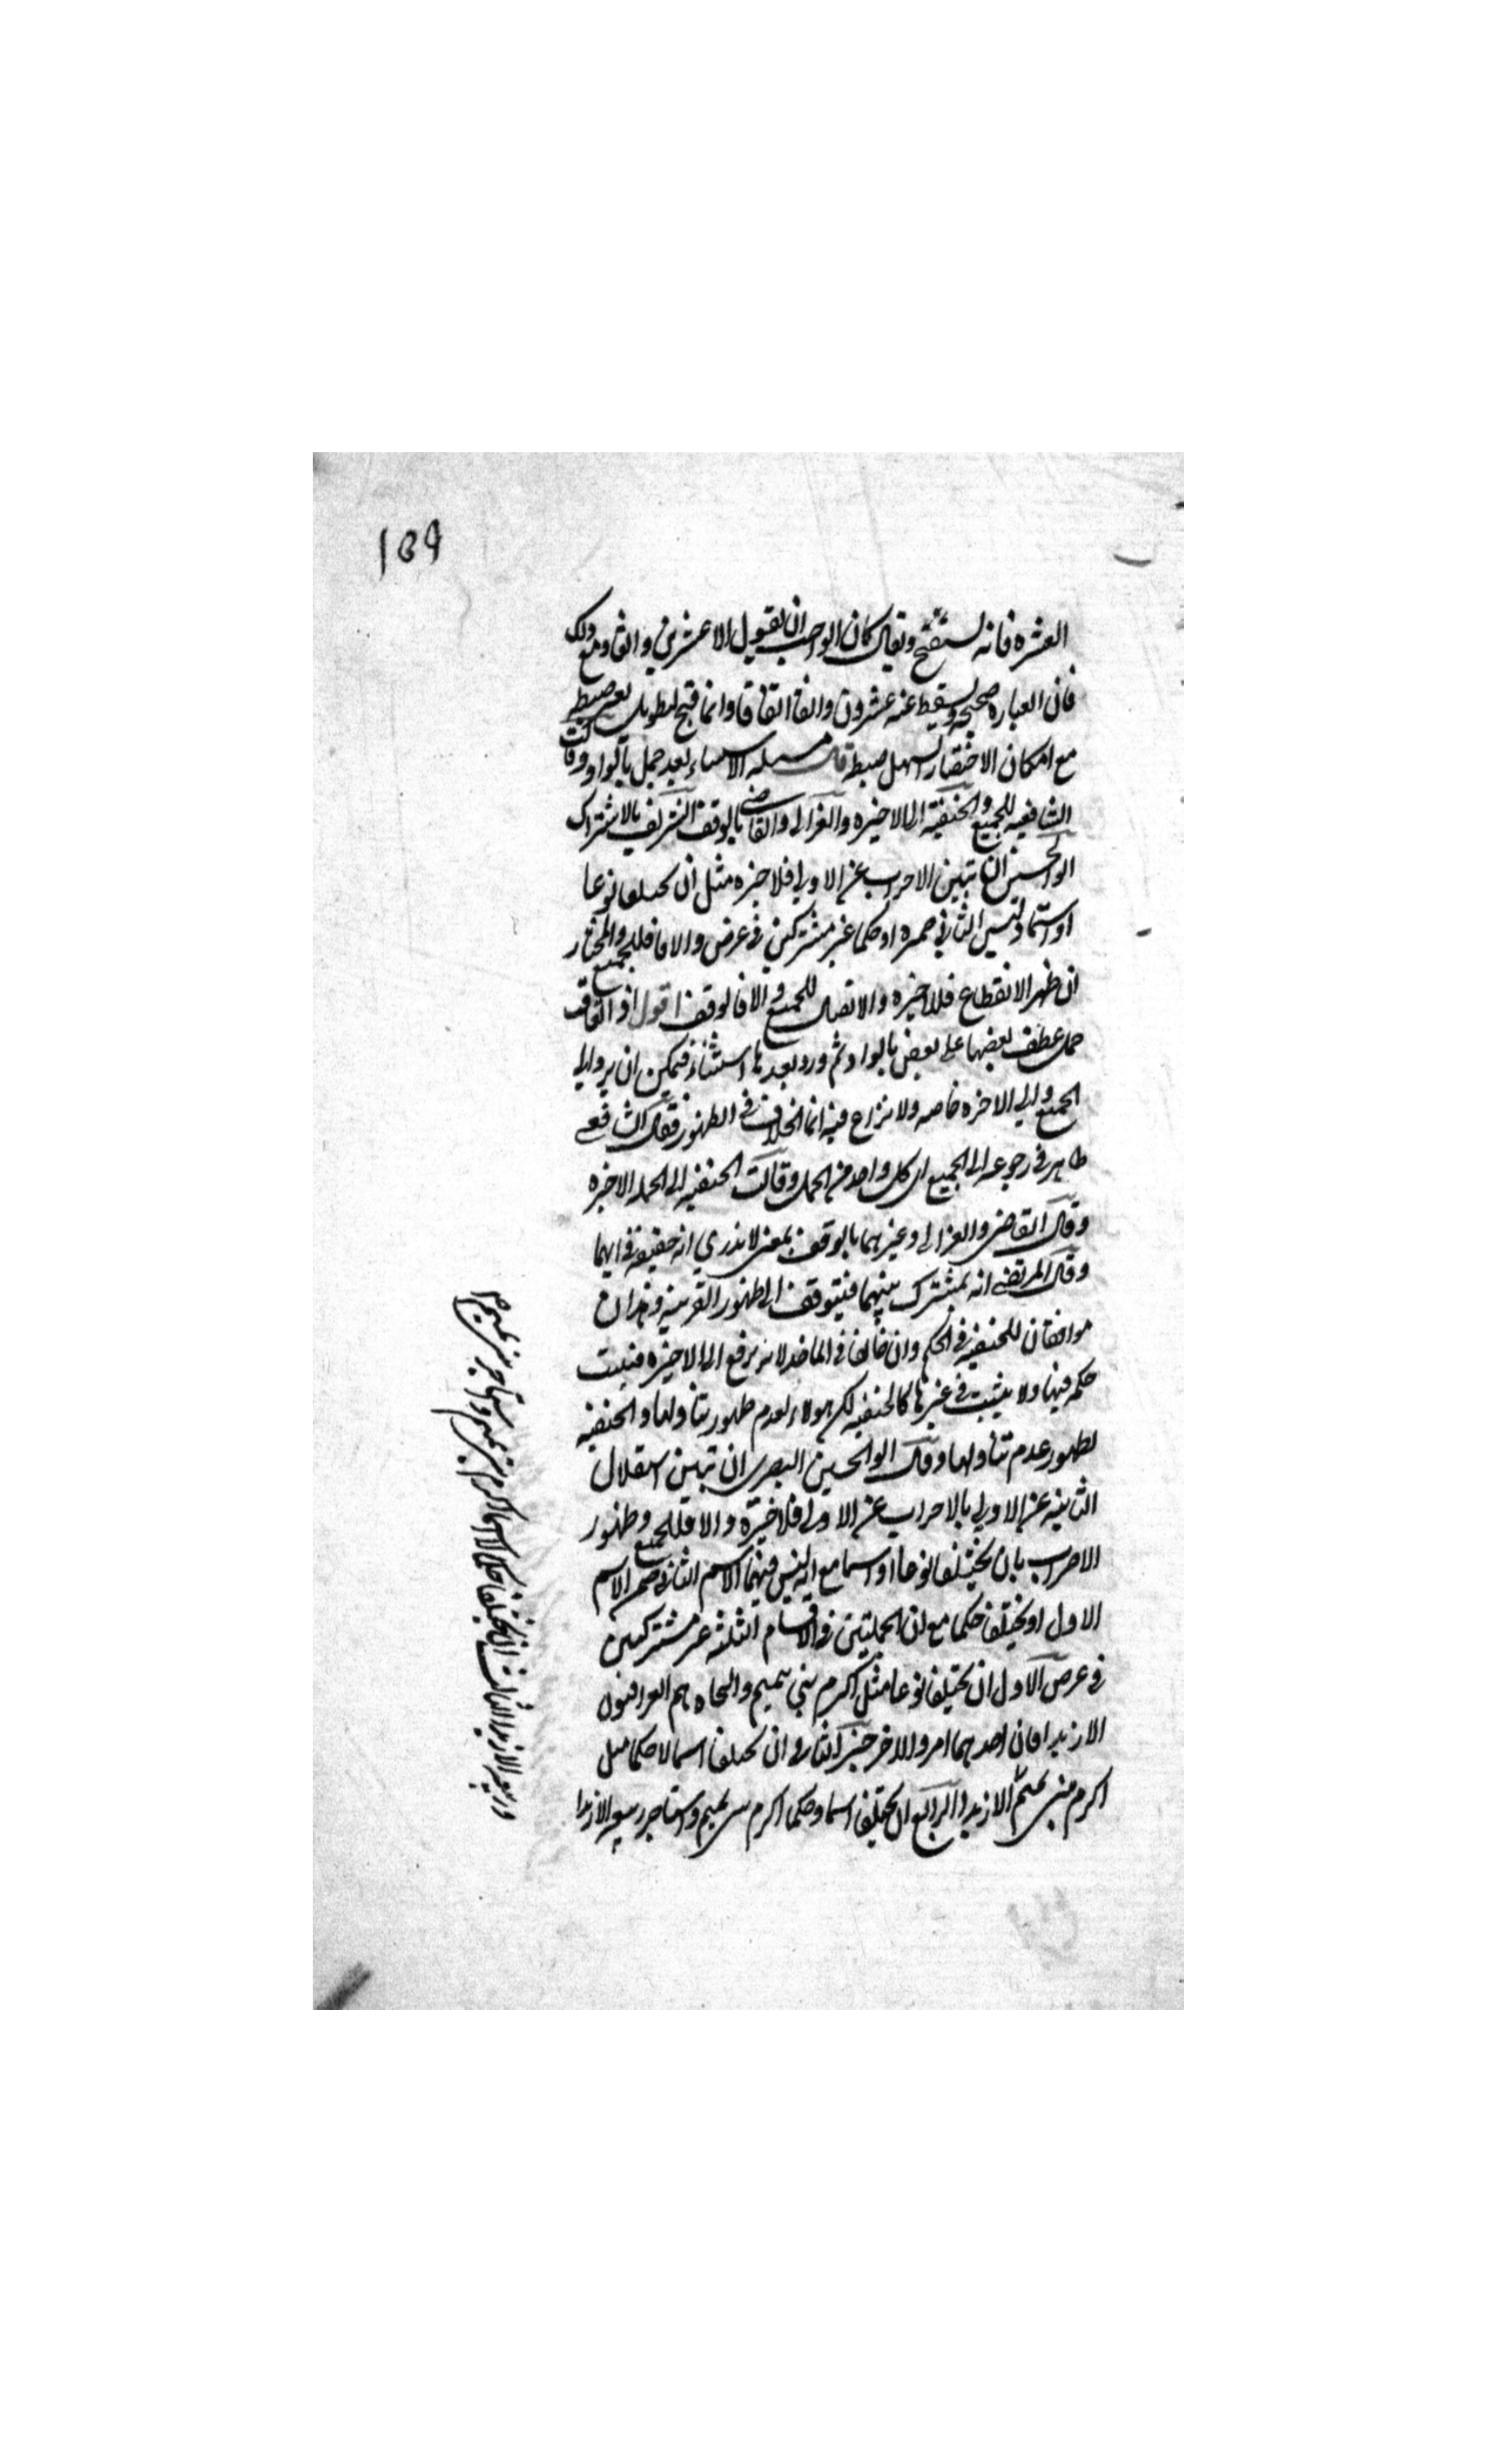 ١٥٩
العشره فانه يستقبح ويقال كان الواجب ان يقول الا عشرين والفا ومع ذلك
فان العباره صحيحه ويسقط عنه عشرون والفا اتفاقا وانما قبح لتطويل يعسر ضبطه
مع امكان الاختصار يسهل ضبطه قال مسئله الاستثناء بعد جمل بالواو وقالت
الشافعيه للجميع والحنفية الى الاخيره والغزالى والقاضى بالوقف الشريف بالاشتراك
ابو الحسين ان تبين الاضراب عن الاولى فلاخيره مثل ان يختلفا نوعا
او اسما وليس الثانى ضميره او حكما غير مشتركين فى غرض والا فللجميع والمختار
ان ظهر الانقطاع فللاخيره والاتصال للجميع والا فالوقف اقول اذا تعاقب
جمل عطف بعضها على بعض بالواو ثم ورد بعدها استثناء فيمكن ان يرد الى
الجميع والى الاخره خاصه ولا نزاع فيه انما الخلاف فى الظهور فقال الشافعى
ظاهر فى رجوعه الى الجميع اى كل واحد من الجمل وقالت الحنفيه الى الجمله الاخيره
وقال القاضى والغزالى وغيرهما بالوقف بمعنى لا ندرى انه حقيقة فى ايهما
وقال المرتضى انه مشترك بينهما فيتوقف الى ظهور القرينه وهذان
موافقان للحنفيه فى الحكم وان خالفا فى الماخذ لانه يرفع الى الاخيره فيثبت
حكمه فيها ولا يثبت فى غيرها كالحنفيه لكن هولاء لعدم ظهور تناولها والحنفيه
لظهور عدم تناولها وقال ابو الحسين البصرى ان تبين استقلال
الثانيه عن الاولى بالاضراب عن الاولى فللاخيره والا فللجميع وظهور
الاضراب بان يختلفا نوعا او اسما مع انه ليس فيهما الاسم الثانى ضمير الاسم
الاول او يختلفا حكما مع ان الجملتين فى الاقسام الثلثه غير مشتركين
فى غرض الاول ان يختلفا نوعا مثل اكرم بنى تميم والنحاه هم العراقيون
الا زيدا فان احدهما امر والاخر خبر الثانى ان يختلفا اسما لا حكما مثل
اكرم بنى تميم الا زيدا الرابع ان يختلفا اسما وحكما اكرم بنى تميم واستاجر ربيعه الا زيدا
وربيعه الا زيدا الثالث ان يختلفا حكما لا اسما اكرم بنى تميم واستاجر بنى تميم